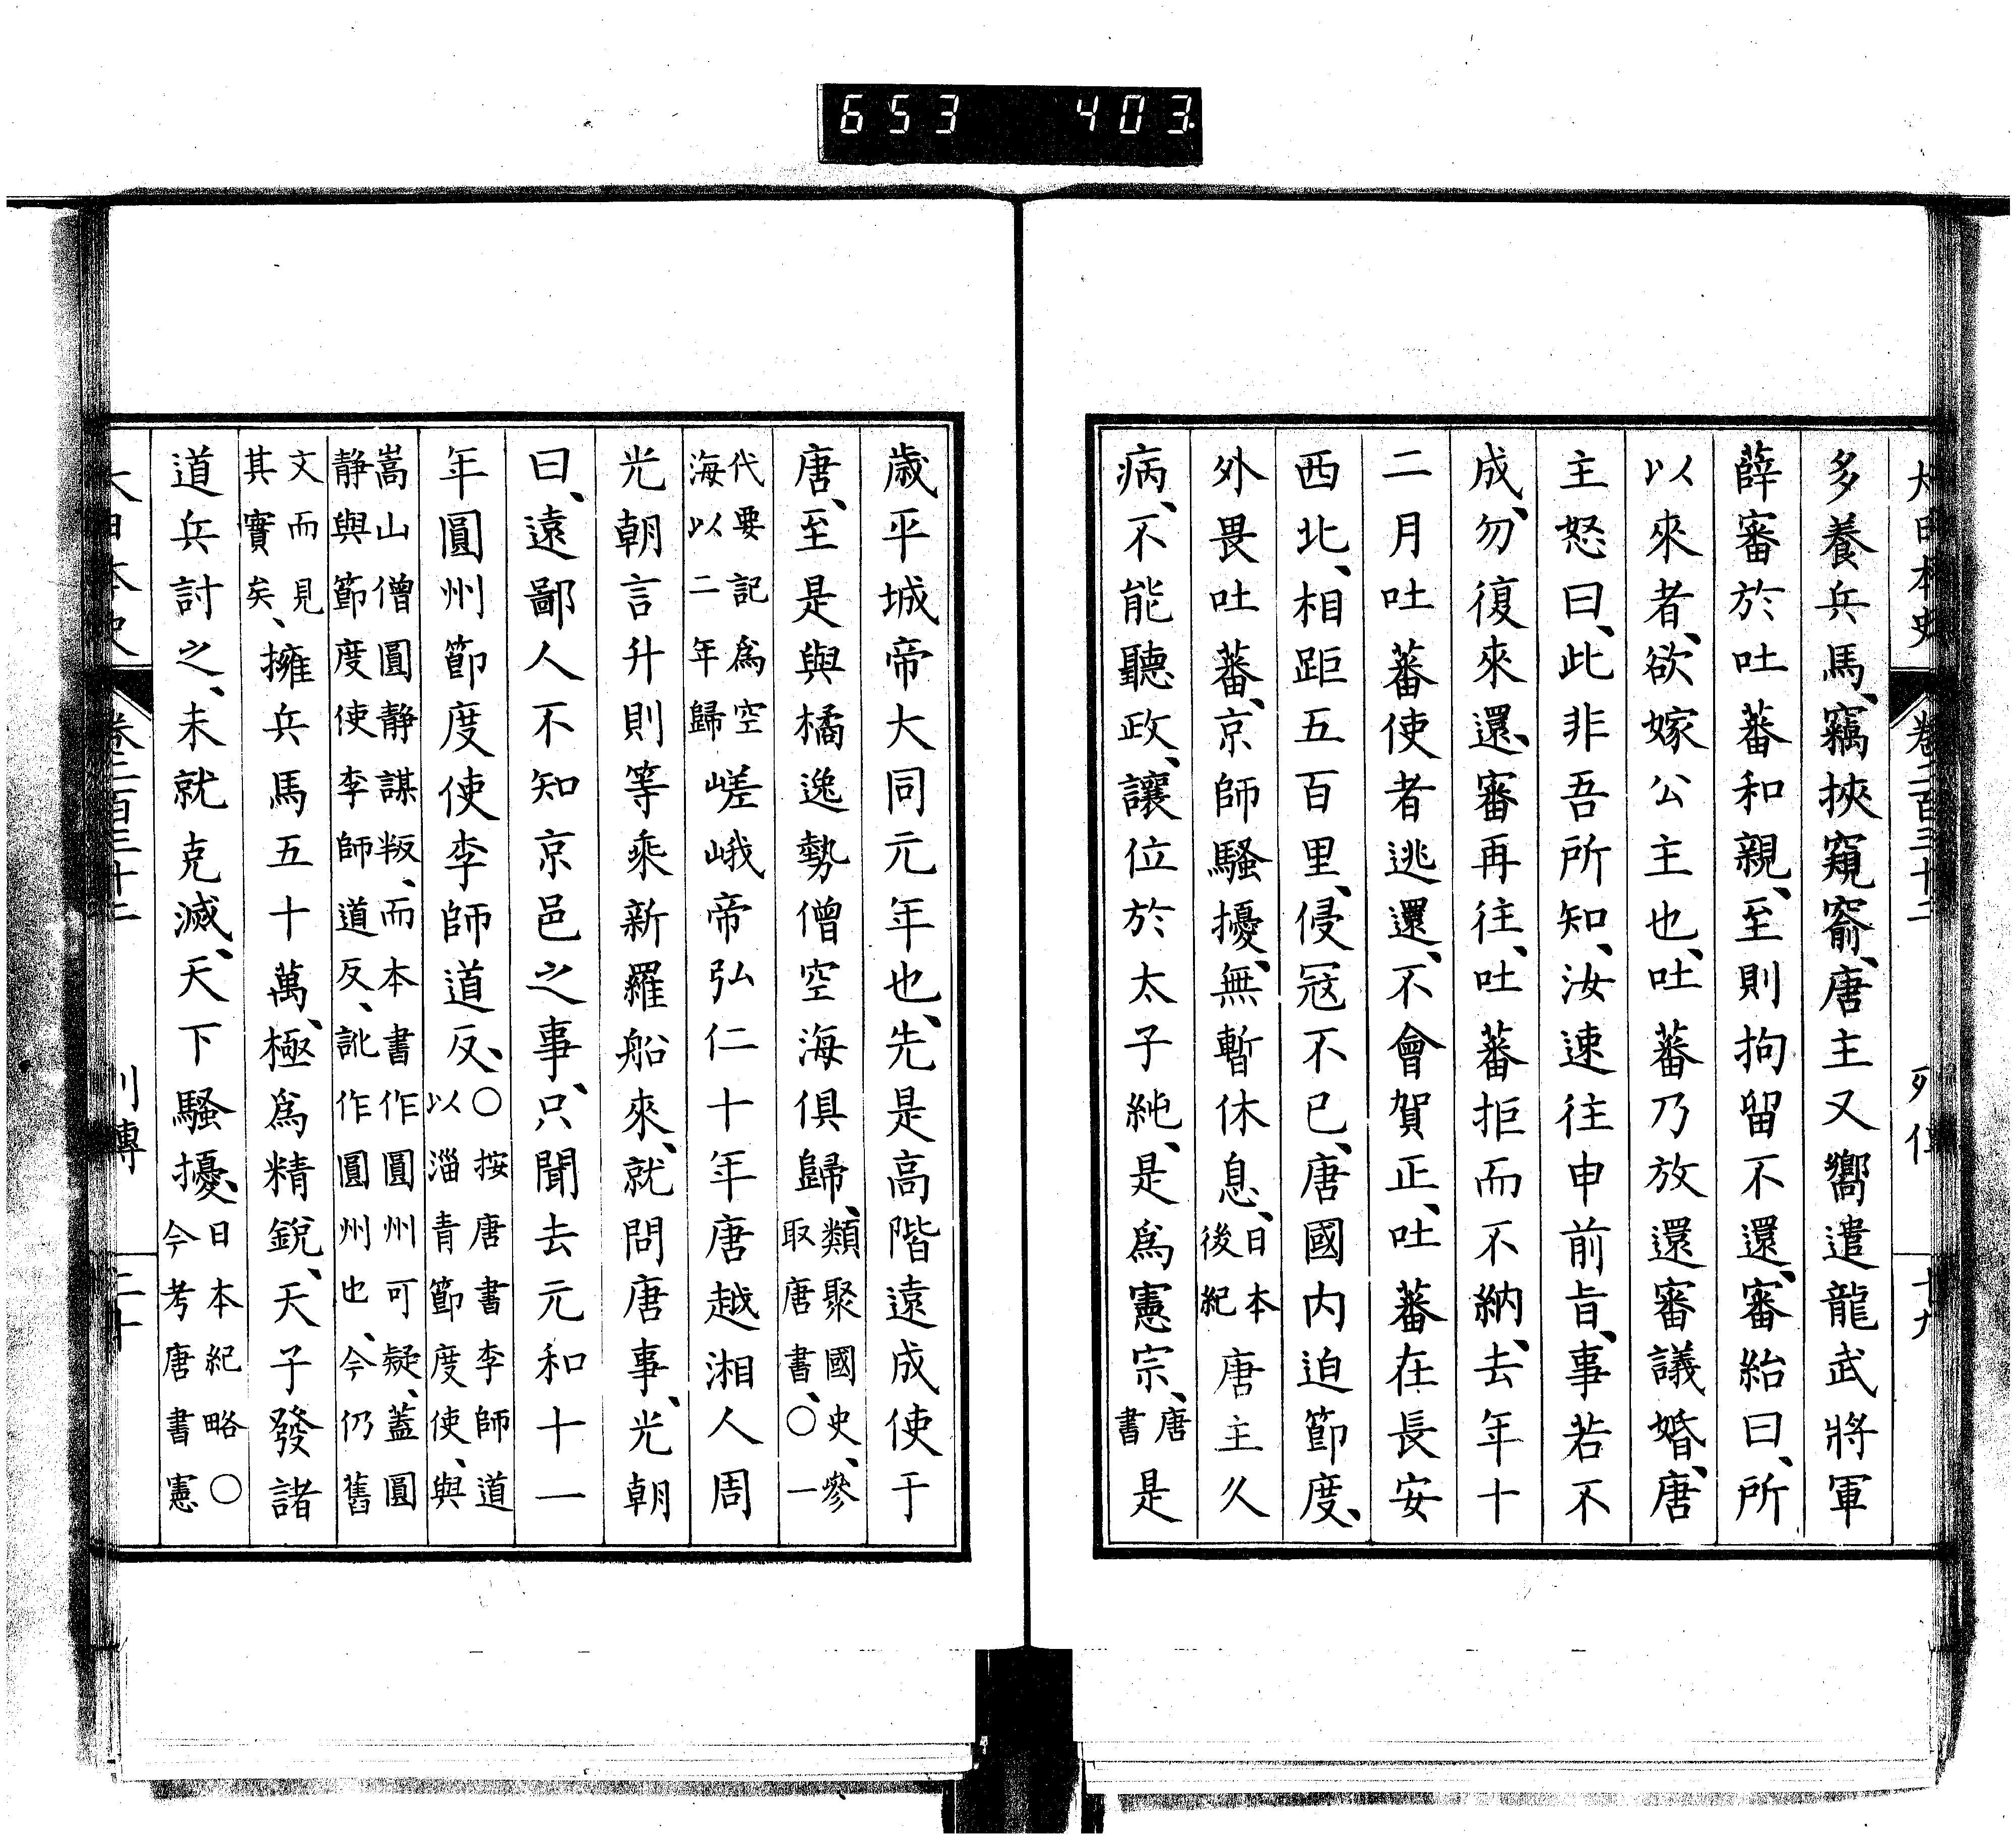 653 403.
大日本史 卷二百三十二 列傳 十九
多養兵馬、竊挾窺窬、唐主又嚮遣龍武將軍
薛審於吐蕃和親、至則拘留不還、審紿曰、所
以來者、欲嫁公主也、吐蕃乃放還審議婚、唐
主怒曰、此非吾所知、汝速往申前旨、事若不
成、勿復來還、審再往、吐蕃拒而不納、去年十
二月吐蕃使者逃還、不會賀正、吐蕃在長安
西北、相距五百里、侵冦不已、唐國内迫節度、
外畏吐蕃、京師騷擾、無暫休息、日本後紀唐主久
病、不能聽政、讓位於太子純、是爲憲宗、唐書是
歲平城帝大同元年也、先是高階遠成使于
唐、至是與橘逸勢僧空海俱歸、類聚國史、參取唐書、〇一
代要記爲空海以二年歸嵯峨帝弘仁十年唐越湘人周
光朝言升則等乘新羅船來、就問唐事、光朝
曰、遠鄙人不知京邑之事、只聞去元和十一
年圓州節度使李師道反、〇按唐書李師道以淄青節度使、與
嵩山僧圓静謀叛、而本書作圓州可疑、蓋圓静與節度使李師道反、訛作圓州也、今仍舊
文而見其實矣、擁兵馬五十萬、極爲精銳、天子發諸
道兵討之、未就克滅、天下騷擾、日本紀略〇今考唐書憲
大日本史 卷二百三十二 列傳 二十